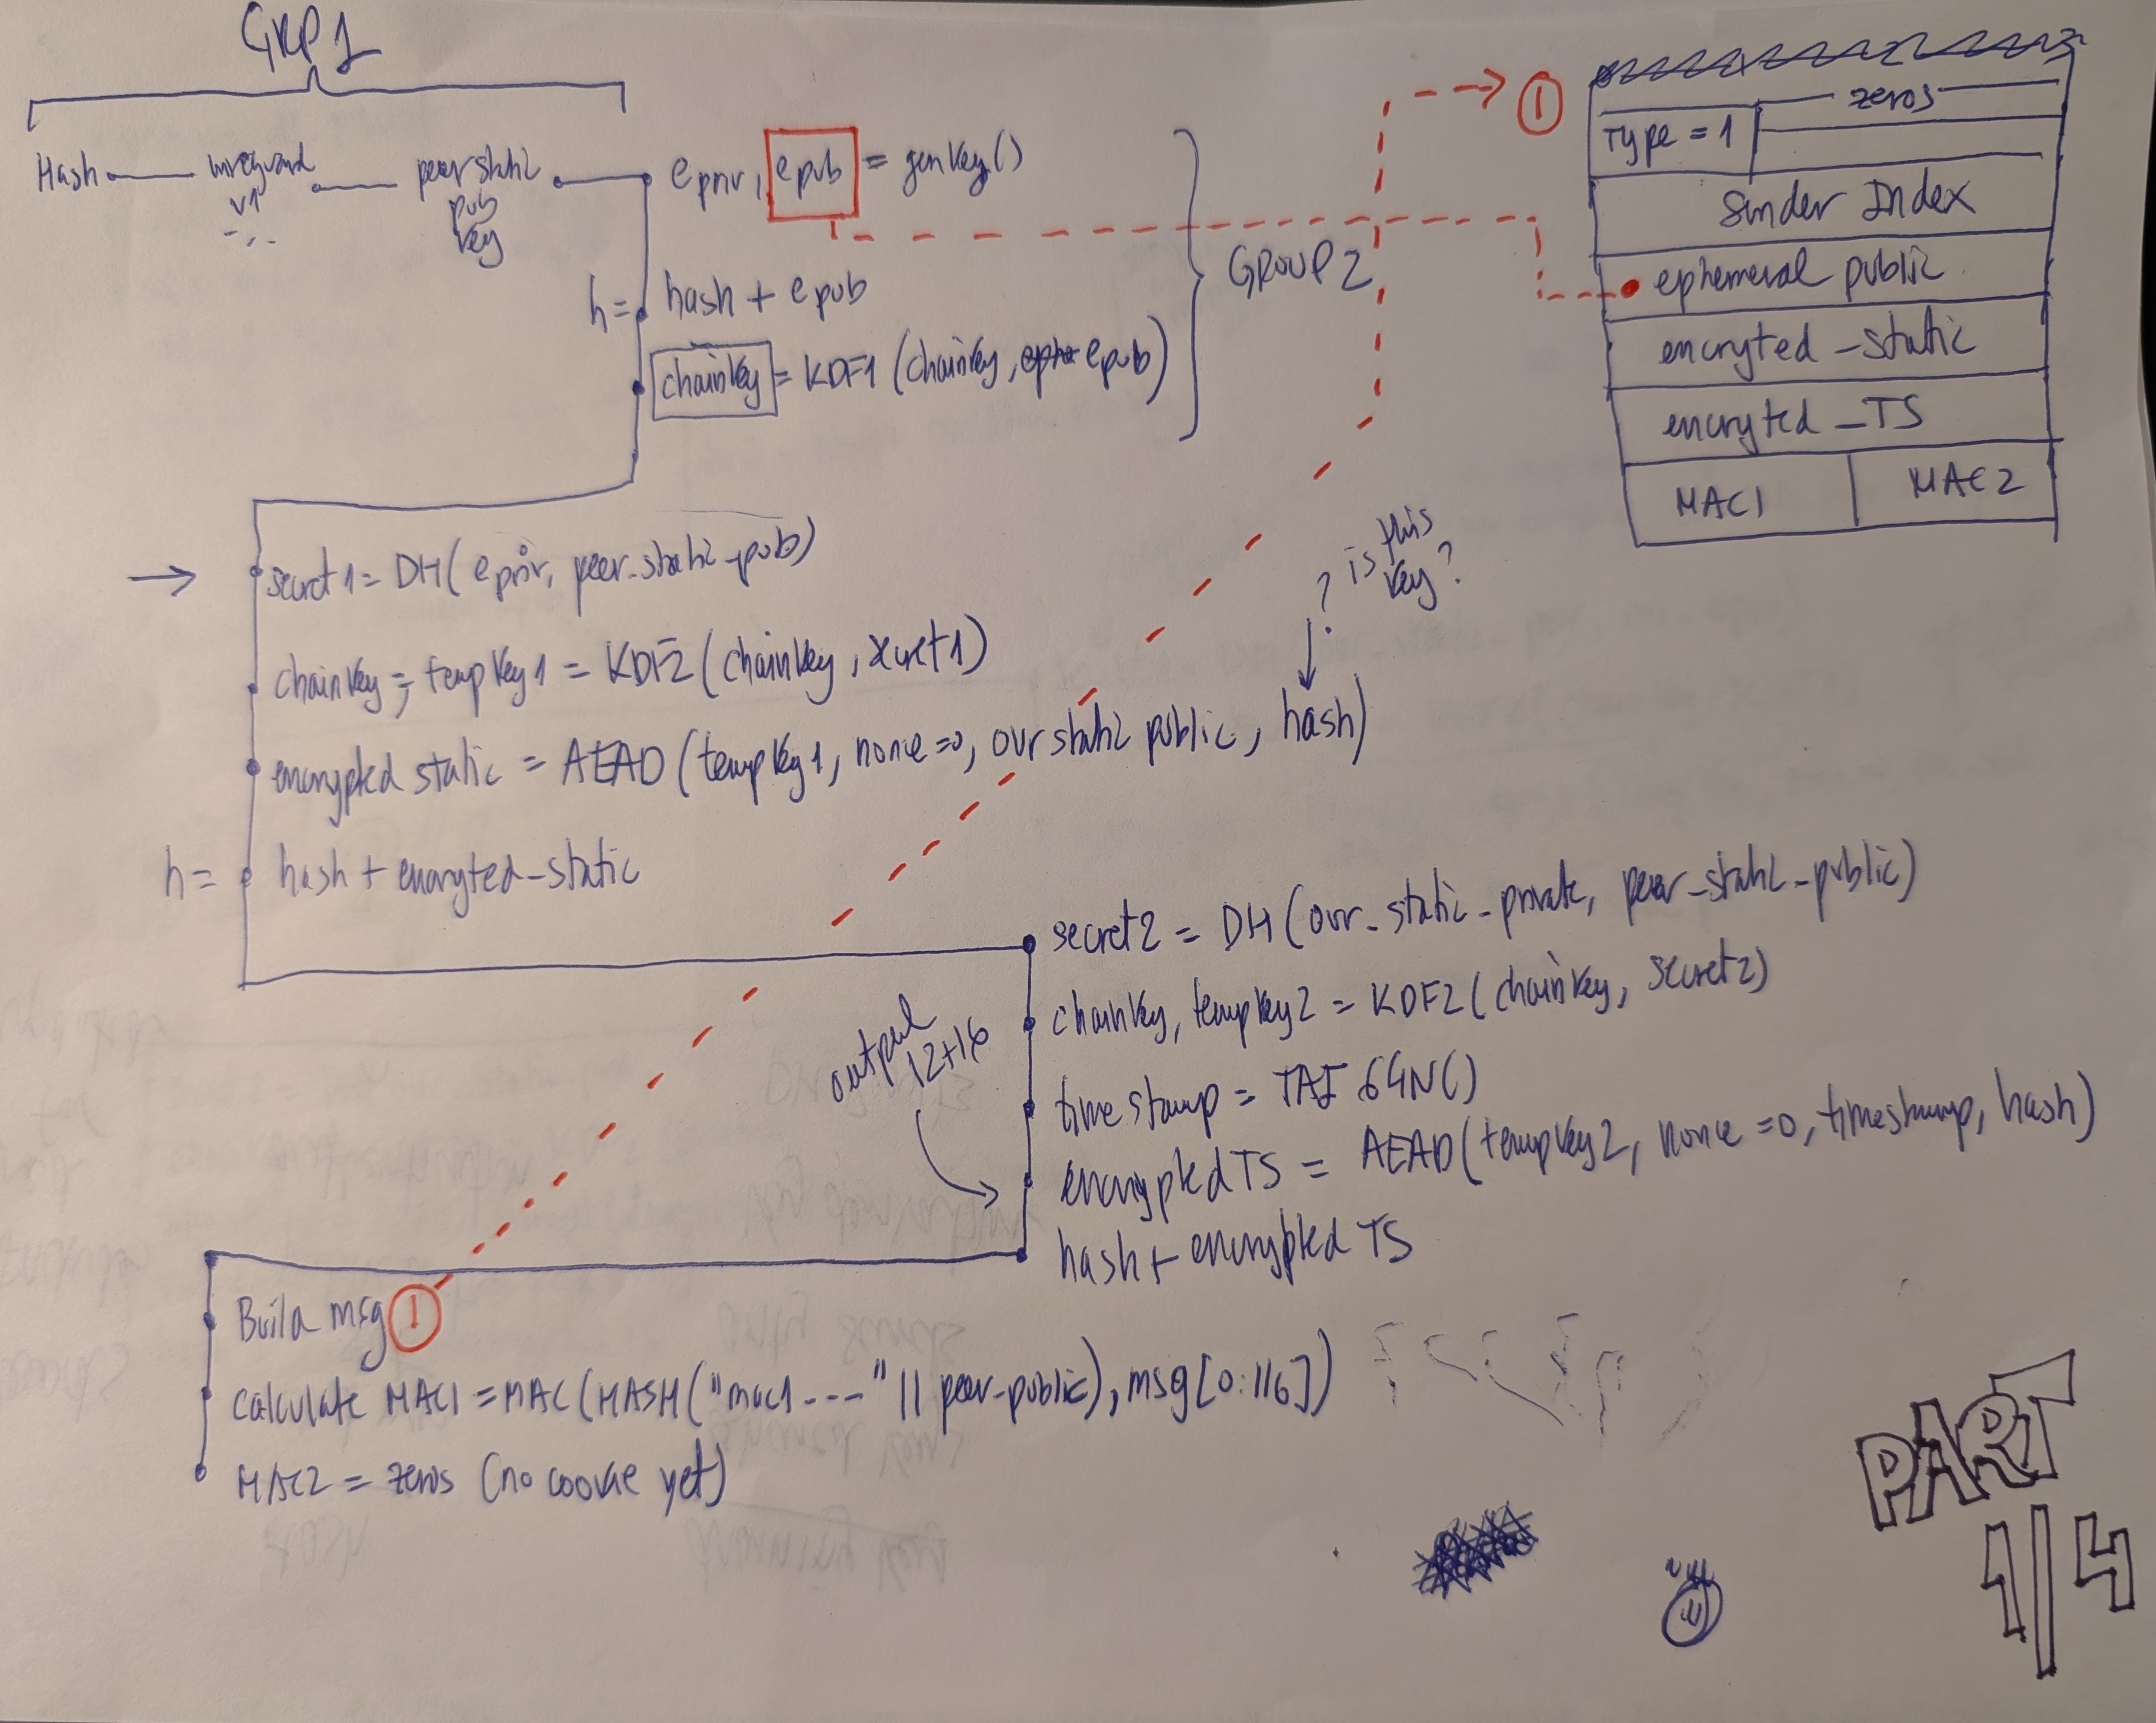 GRP 1
Hash wireguard peer static
v1 pub
-,. key
epriv, epub = genkey()
h= hash + epub
chainkey = KDF1 (chainkey, epub)
GROUP 2
1
zeros
Type = 1
Sinder Index
ephemeral public
encryted _static
encryted _TS
MAC1 MAC2
secret 1 = DH( epriv, peer_static_pub)
chainkey, tempkey1 = KDF2 (chainkey, secret1)
? is this
key?
encrypted static = AEAD (tempkey1, nonce=0, our static public, hash)
h= hash + encryted_static
secret2 = DH (our_static_private, peer_static_public)
chainkey, tempkey2 = KDF2 (chainkey, secret2)
output
12+16
timestamp = TAI 64N()
encrypted TS = AEAD (tempkey2, nonce =0, timestamp, hash)
hash + encrypted TS
Build msg 1
calculate MAC1 = MAC (HASH ("mac1----" || peer_public), msg[0:116])
MAC2 = zeros (no cookie yet)
PART
1/4